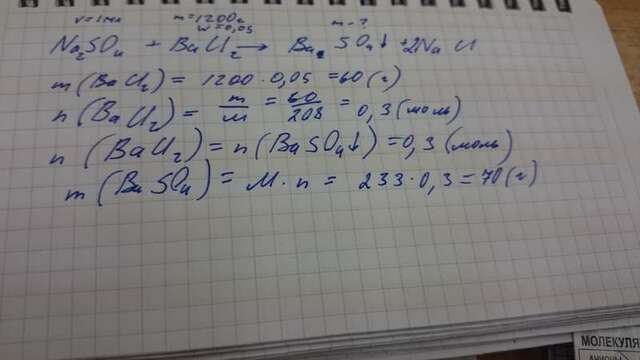 ν=1мл m=1200г m-?
w=0,05
Na₂SO₄ + BaCl₂ → BaSO₄↓ + 2NaCl
m(BaCl₂) = 1200·0,05 = 60(г)
n(BaCl₂) = m/M = 60/208 = 0,3(моль)
n(BaCl₂) = n(BaSO₄↓) = 0,3(моль)
m(BaSO₄) = M·n = 233·0,3 = 70(г)
МОЛЕКУЛЯ